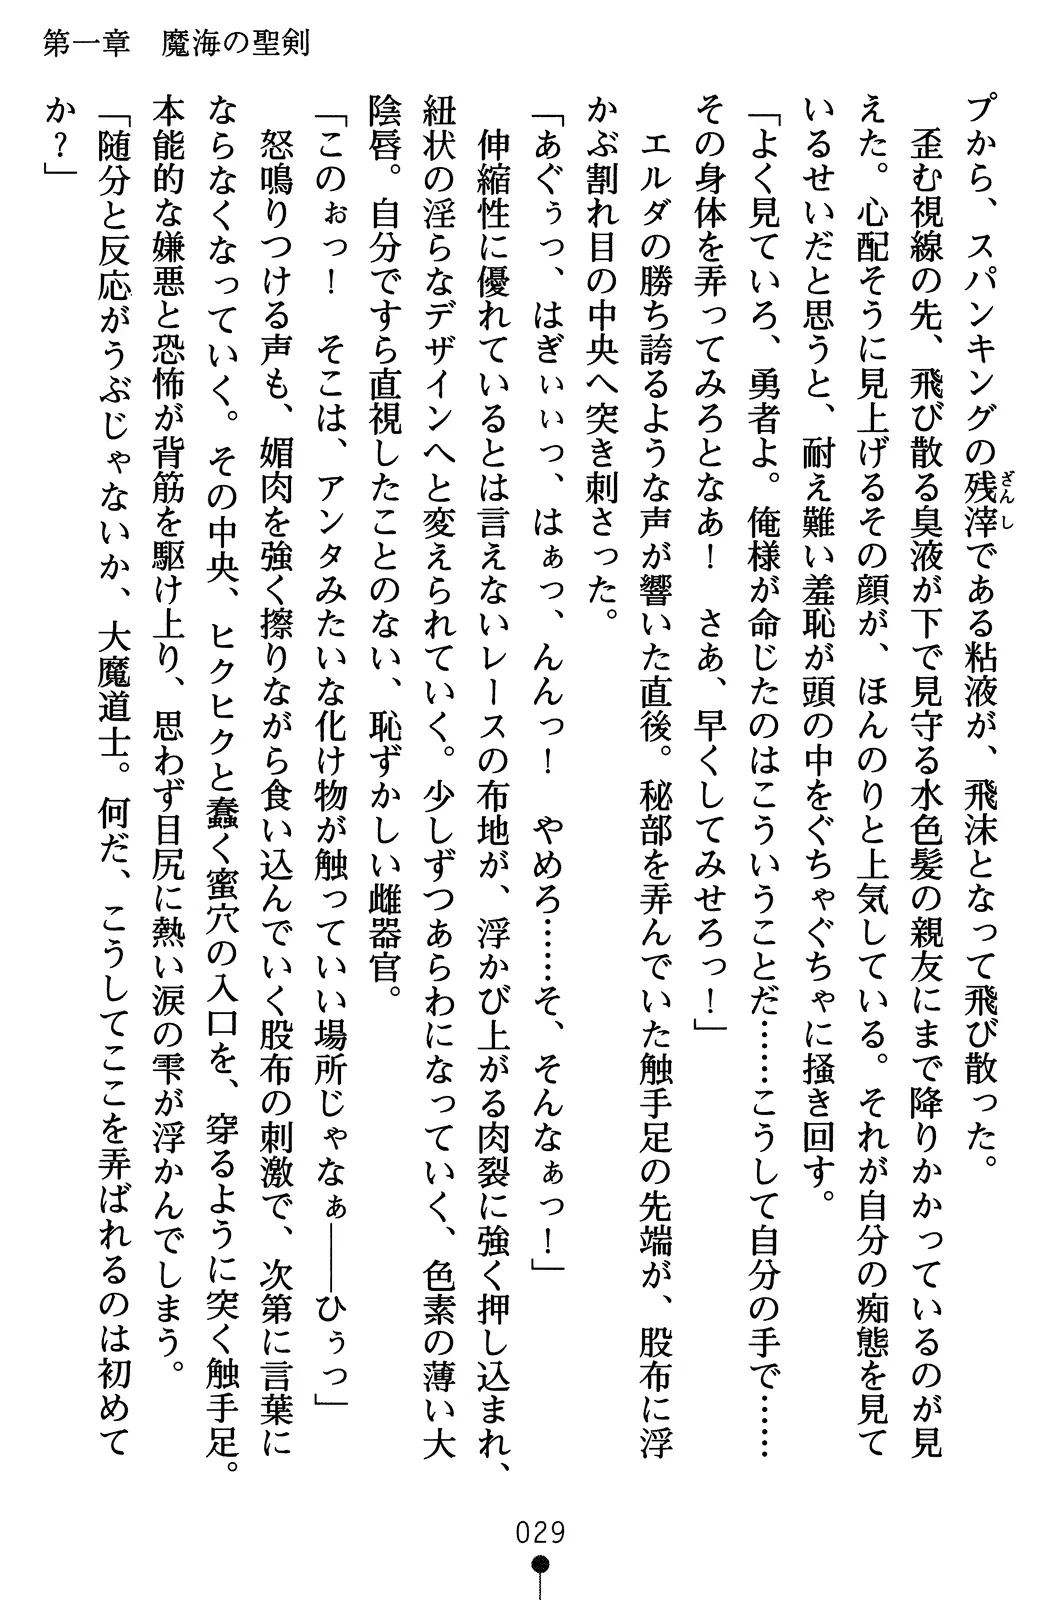 第一章　魔海の聖剣
プから、スパンキングの残滓である粘液が、飛沫となって飛び散った。
ざんし
　歪む視線の先、飛び散る臭液が下で見守る水色髪の親友にまで降りかかっているのが見
えた。心配そうに見上げるその顔が、ほんのりと上気している。それが自分の痴態を見て
いるせいだと思うと、耐え難い羞恥が頭の中をぐちゃぐちゃに掻き回す。
「よく見ていろ、勇者よ。俺様が命じたのはこういうことだ……こうして自分の手で……
その身体を弄ってみろとなあ！　さあ、早くしてみせろっ！」
　エルダの勝ち誇るような声が響いた直後。秘部を弄んでいた触手足の先端が、股布に浮
かぶ割れ目の中央へ突き刺さった。
「あぐぅっ、はぎぃぃっ、はぁっ、んんっ！　やめろ……そ、そんなぁっ！」
　伸縮性に優れているとは言えないレースの布地が、浮かび上がる肉裂に強く押し込まれ、
紐状の淫らなデザインへと変えられていく。少しずつあらわになっていく、色素の薄い大
陰唇。自分ですら直視したことのない、恥ずかしい雌器官。
「このぉっ！　そこは、アンタみたいな化け物が触っていい場所じゃなぁ――ひぅっ」
　怒鳴りつける声も、媚肉を強く擦りながら食い込んでいく股布の刺激で、次第に言葉に
ならなくなっていく。その中央、ヒクヒクと蠢く蜜穴の入口を、穿るように突く触手足。
本能的な嫌悪と恐怖が背筋を駆け上り、思わず目尻に熱い涙の雫が浮かんでしまう。
「随分と反応がうぶじゃないか、大魔道士。何だ、こうしてここを弄ばれるのは初めて
か？」
029